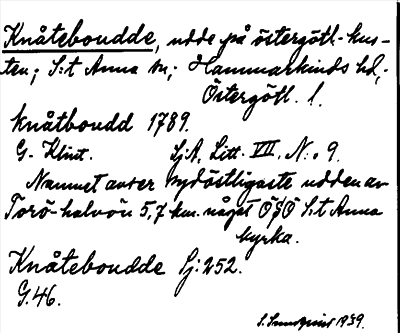 Knåteboudde, udde på östergötl. kus-
ten; S:t Anna sn; Hammarkinds hd,
Östergötl. l.
Knåtboudd 1789.
G. Klint. SjA, Litt. VII. N:o 9.
Namnet avser sydöstligaste udden av
Torö-halvön 5,7 km. något OSO S:t Anna
kyrka.
Knåteboudde Sj: 252.
G. 46.
S. Sundquist 1939.